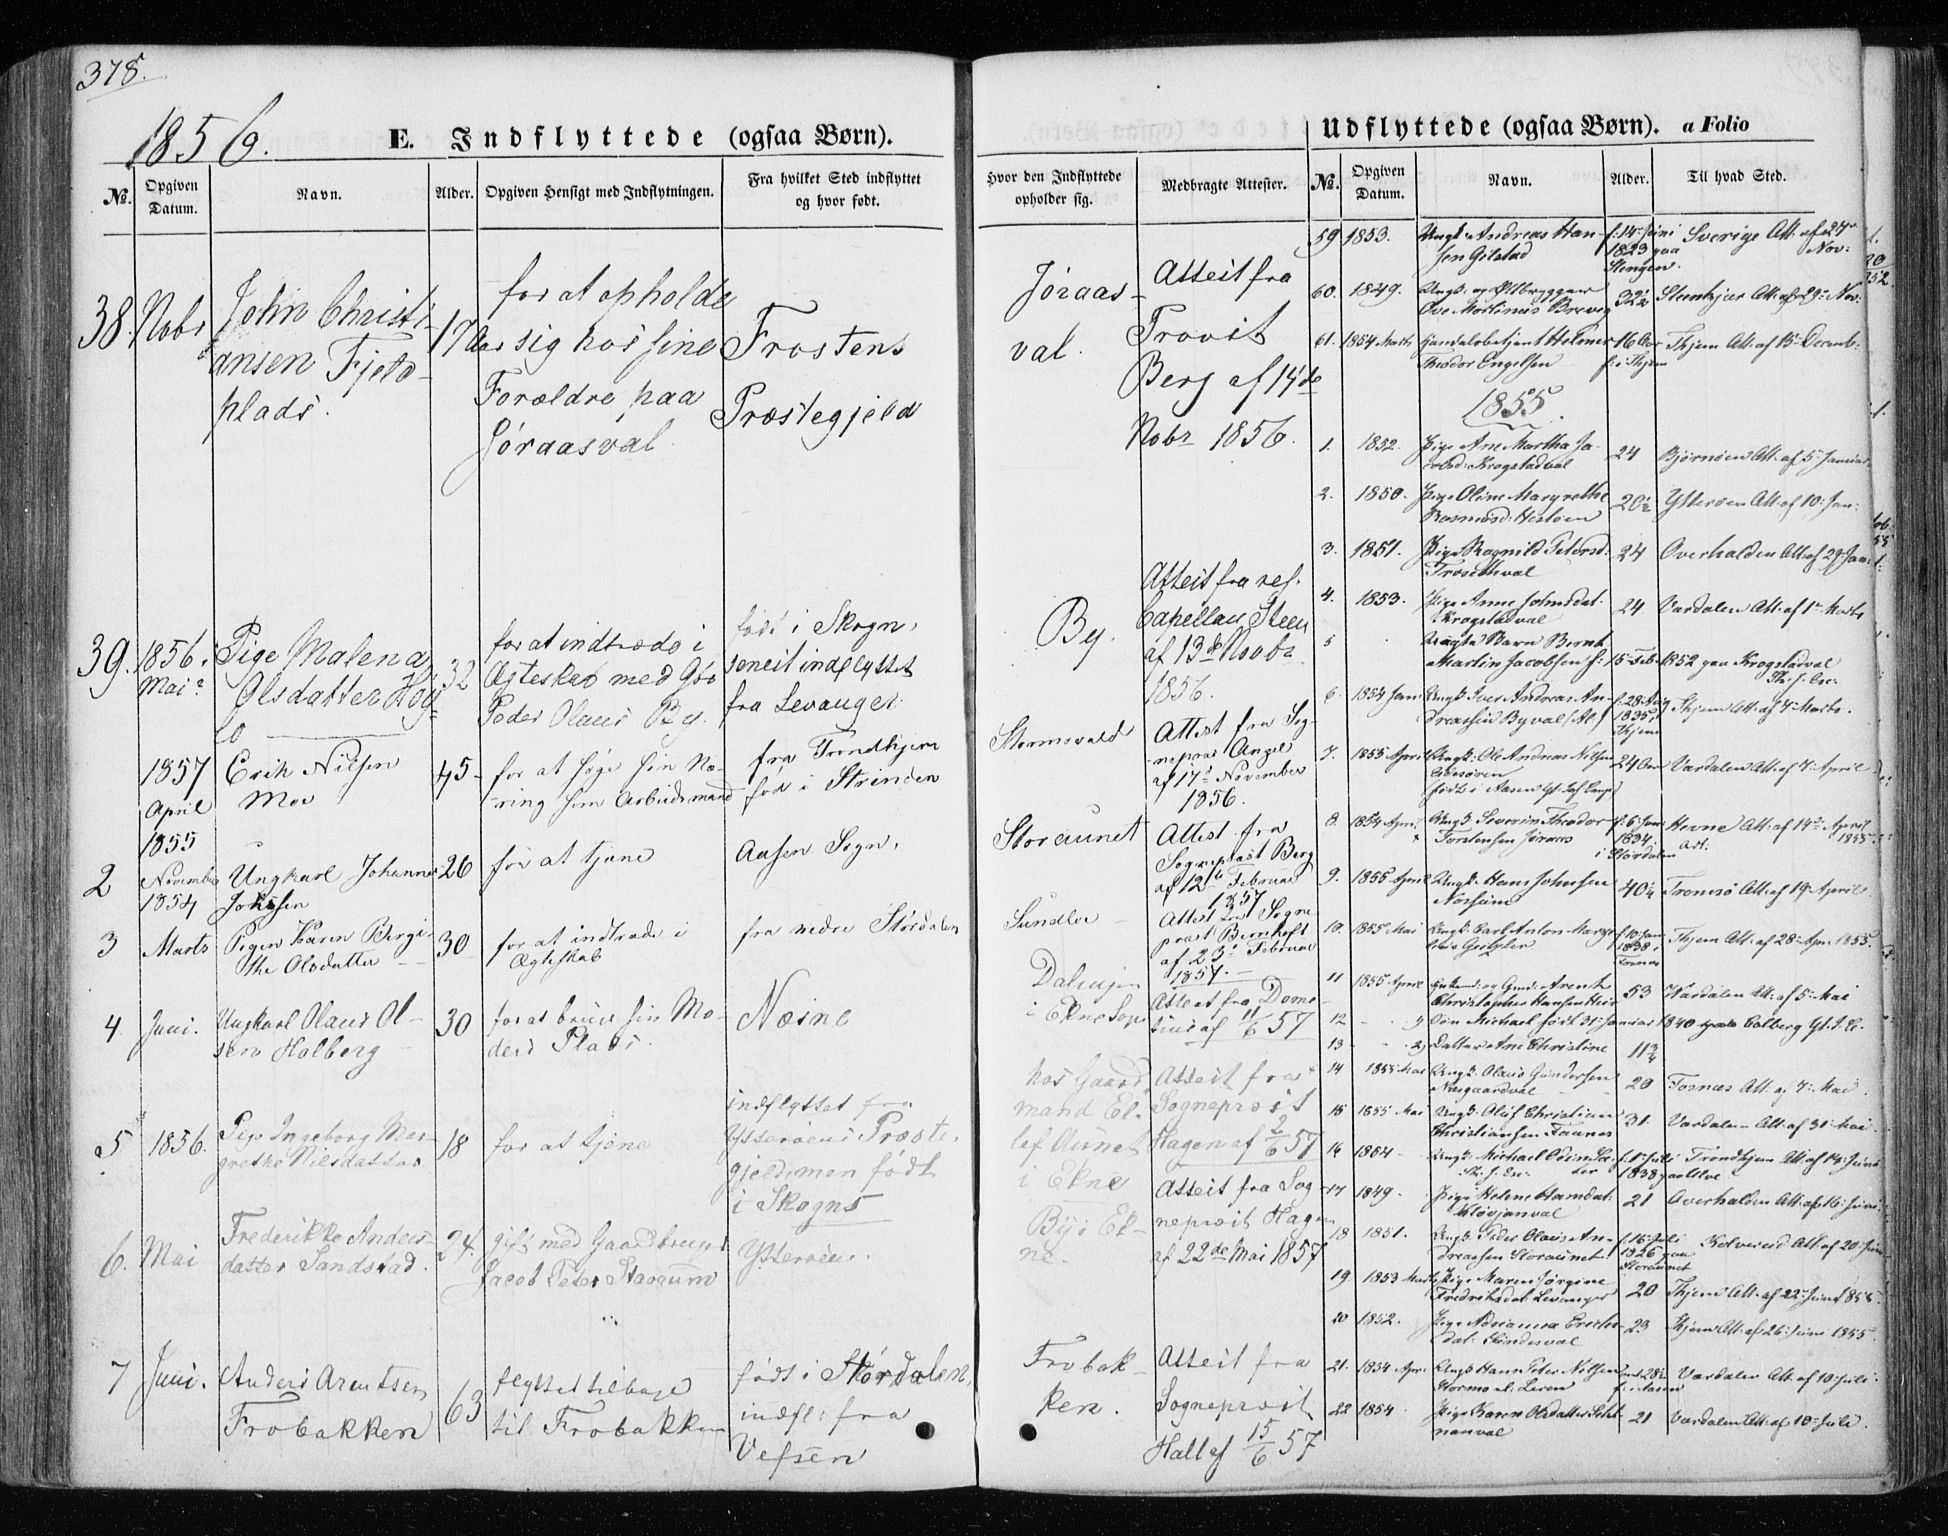 378.
1856.
E. Indflyttede (ogsaa Børn).
No.
Opgiven Datum.
Navn.
Alder.
Opgiven Hensigt med Indflytningen.
Fra hvilket Sted indflyttet og hvor født.
Hvor den Indflyttede opholder sig.
Medbragte Attester.
38. Nobr
John Christi-
ansen Fjeld-
plads.
17 Aar
for at opholde
sig hos sine
Forældre paa
Jøraasval.
Frostens
Præstegjeld
Jøraas-
val.
Attest fra
Provst
Berg af 14de
Nobr 1856.
39. 1856.
Mai
Pige Malena
Olsdatter Høg-
32
for at indtræde i
Ægteskab med
Peder Olaus By.
født i Skogn,
senest indflyttet
fra Levanger
By.
Attest fra res.
Capellan Steen
af 13de Novbr
1856.
1857
April
Erik Nilsen
Moe
45
for at søge sin Næ-
ring som Arbeidsmand
fra Trondhjem
fød i Strinden
Stormovald
Attest fra Sog-
nepræst Angel
af 17de November
1856.
2
1855
November
Ungkarl Johannes
26
for at tjene
Aasen Sogn,
Storaunet
Attest fra
Sogneprost Berg
af 12te Februar
1857
3
1854
Marts
Pigen Karen Bergi-
the Olsdatter
30
for at indtræde i
Ægteskab
fra nedre Størdalen
Sundloe
Attest fra Sogne
præst Bernhoft
af 23de Februar
1857.
4 Juni.
Ungkarl Olaus Ol-
sen Holberg
30
for at bruge sin Mo-
ders Plads.
Næsne
i Ekne Sogn
Attest fra
af 11/6 57
5 1856.
Pige Ingeborg Mar-
grethe Nilsdatter
18
for at tjene
indflyttet fra
Ytterøens Præste-
gjeld, men født
i Skogns
hos Gaard
mand El-
lef Aunet
i Ekne
Attest fra
Sognepræst
Hagen af 2/6 57
6. Mai
Frederikke Anders-
datter Sandstad.
24.
gift med Gaardbruger
Jacob Peter
Ytterøen.
By i Ek-
ne.
Attest fra Sog-
nepræst Hagen
af 22de Mai 1857
7 Juni.
Anders Arentsen
Frobakken
63
flyttet tilbage
til Frobakken
født i Størdalen,
indfl: fra
Vefsen
Frobak-
ken.
Attest fra
Sognepræst
Hall af 15/6 57
Udflyttede (ogsaa Børn). a Folio
No.
Opgiven Datum.
Navn.
Alder.
Til hvad Sted.
59 1853. Ungk: Andreas Han-
sen Gilstad f: 14 Juni
1823 paa
Sverige Att: af 24de
Nov:
60. 1849. Ungk: og Ølbrygger
Ove Martinus 32½ Steenkjær Att: af 29 Nov:
61. 1854 Marts Handelsbetjent Helmer
Theodor Engelsen 16 Aar
f: i Thjem Thjem Att: af 15 Decemb:
1855.
1. 1852. Pige Ane Martha Ja-
Krogstadval 24 Bjørnøen Att: af 5 Januar
2. 1850. Pige Oline Margrethe
20½ Ytterøen Att: af 10 Jan:
3. 1851. Pige Ragnild Petersd:
Trosethval 24 Overhalden Att: af 29 Jan:
4. 1853. Pige Anne Johnsdat:
Krogstadval 24 Værdalen Att: af 1 Marts
5 Barn Bernt
Martin Jacobsen f: 15 Feb: 1852 paa Krogstadval
6. 1854 Jan: Ungk: Iver Andreas An-
dreassen Byval f: 28 Aug
1835 i
Thjem Thjem Att: af 7 Marts.
7. 1855 April Ungk: Ole Andreas Nilsen
født i Aasen 24 Aar Værdalen Att: af 7 April
8. 1854 April Ungk: Severin Theodor
Torstensen Jøraas f: 6 Jan:
1834
i Størdalen Hevne Att: af 14de April
1855.
9. 1855 April Ungk: Hans Johnsen
40½ Tromsø Att: af 19 April
10. 1855 Mai Ungk: Carl Anton
f: 10 Jan:
1838 i
Thjem Att: af 28 Apr: 1855.
11 1855 April Christopher Hansen 53 Værdalen Att: af 5 Mai
12 Søn Michael født 31 Januar 1840
13 Datter Ane Christine 11¾
14 1855 Mai Ungk: Olaus Gundersen
Nesgaardval 20 Fosnæs Att: af 7 Mai
15 1855 Mai Ungk: Oluf Christian
Christiansen 31. Værdalen Att: af 31 Mai
16 1854 Ungk: Michael
f: 1 Juli
1838 Trondhjem Att: af 14 Juni
17 1849. Pige Helene Hansdat:
21 Overhalden Att: af 16 Juni
18 1851. Ungk: Peder Olaus An-
dreasen Storaunet f: 16 Juli
1826 paa
Storaunet Att: af 20 Juni
19 1853 Marts Pige Maren Jørgine
Fredriksdat: Levanger 20 Thjem Att: af 22 Juni 1855.
20 1852. Pige Adrianna
23 Thjem Att: af 26 Juni 1855.
21. 1854 Apr: Ungk: Hans Peter Nilsen
Værdalen Att: af 10 Juli
22 1854. Pige Karen Olsdatter
21 Værdalen Att: af 10 Juli.